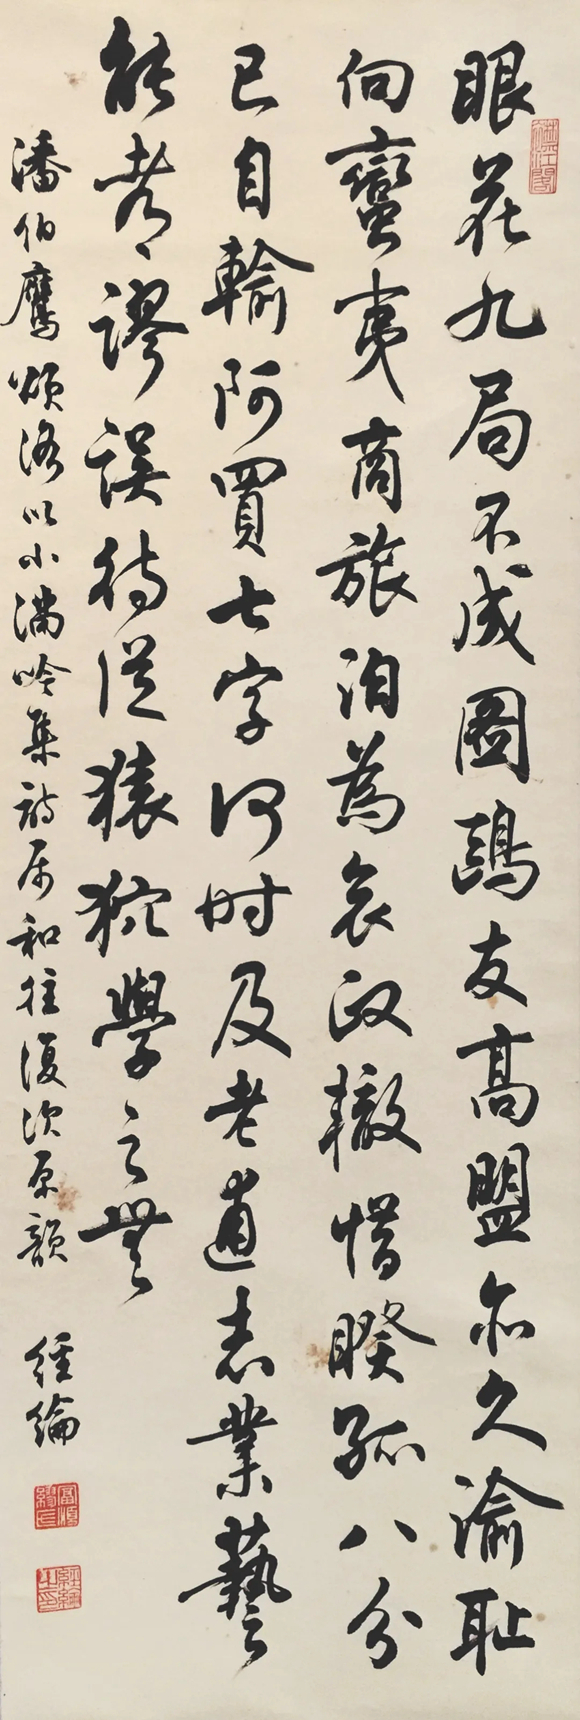 眼花九局不成圖鷗友高盟亦久渝耻
向蠻夷商旅泊為哀政轍惜睽孤八分
已自輸阿買七字何时及老逋志業藝
能都謬誤待從猿狖學之無
潘伯鷹頌洛以小滿吟集詩属和往復次原韻 經綸
經綸之印